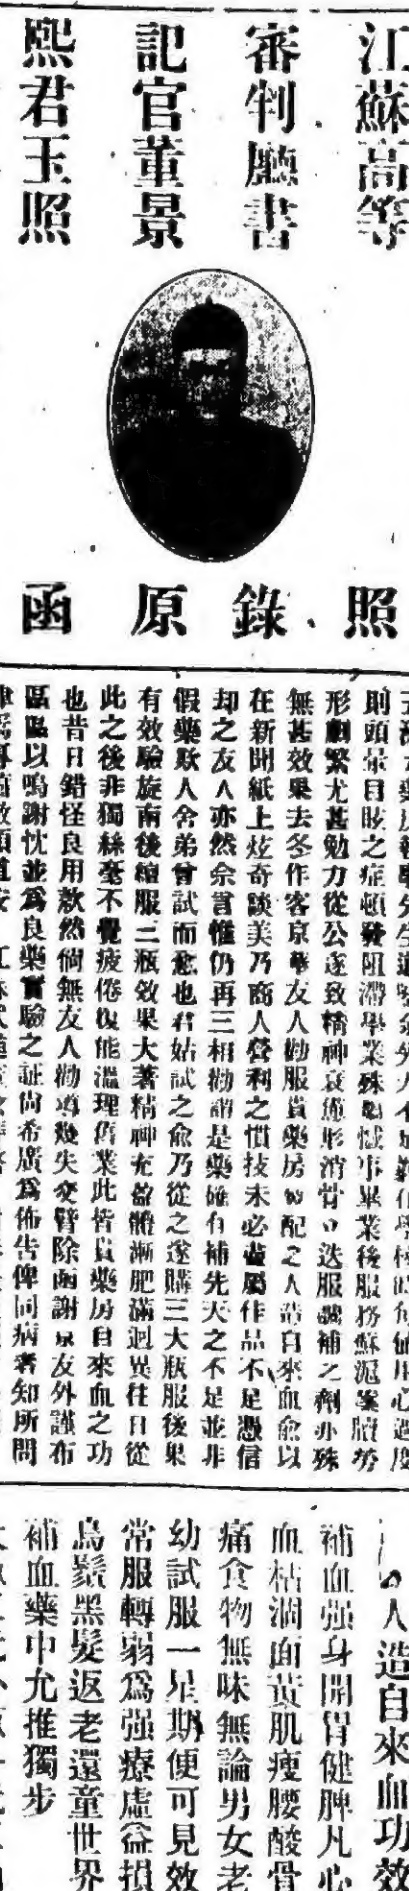 江蘇高等
審判廳書
記官董景
熙君玉照
照錄原函
則頭暈目眩之症頓發阻滯學業殊憾事畢業後服務蘇滬案牘勞
形劇繁尤甚勉力從公遂致精神衰憊形消骨立迭服滋補之劑亦殊
無甚效果去冬作客京華友人勸服貴藥房所配之人造自來血余以
在新聞紙上炫奇談美乃商人營利之慣技未必盡屬作品不足憑信
却之友人亦然余言惟仍再三相勸謂是藥確有補先天之不足並非
假藥欺人舍弟曾試而愈也君姑試之余乃從之遂購三大瓶服後果
有效驗旋南後續服三瓶效果大著精神充盈體漸肥滿迥異往日從
此之後非獨絲毫不覺疲倦復能溫理舊業此皆貴藥房自來血之功
也昔日錯怪良用歉然倘無友人勸導幾失交臂除函謝京友外謹布
區區以鳴謝忱並為良藥實驗之証尚希廣為佈告俾同病者知所問
人造自來血功效
補血强身開胃健脾凡心
血枯涸面黃肌瘦腰酸骨
痛食物無味無論男女老
幼試服一星期便可見效
常服轉弱爲强療虛益損
烏鬚黑髮返老還童世界
補血藥中允推獨步